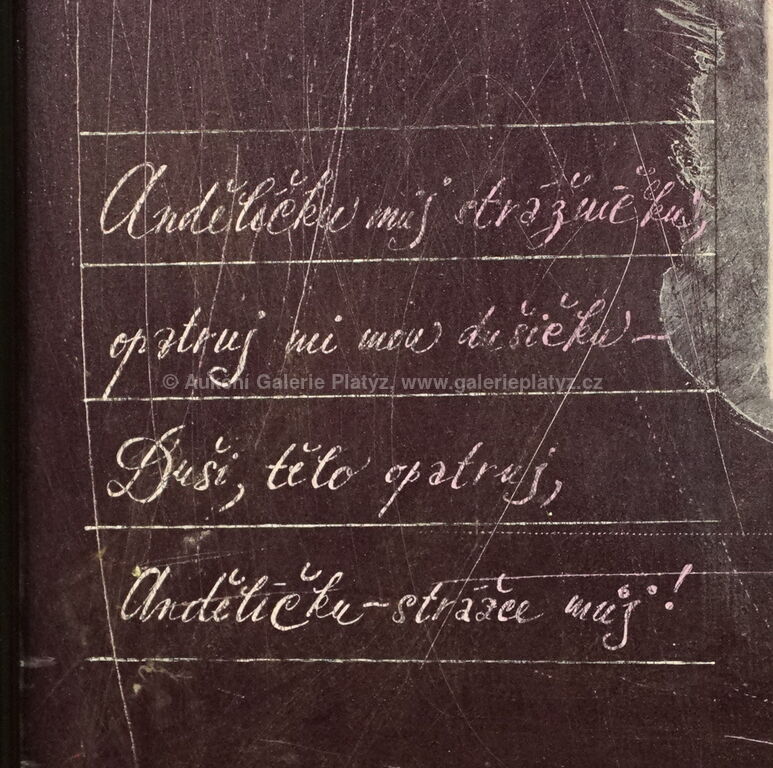 Andělíčku můj strážníčku,
opatruj mi mou dušičku –
© Aukční Galerie Platýz, www.galerieplatyz.cz
Duši, tělo opatruj,
Andělíčku – strážce můj!